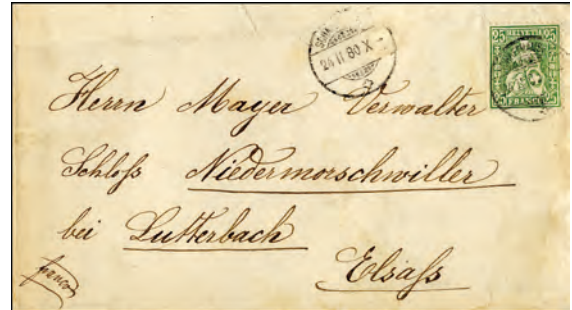 24 II 80 X
25 HELVETIA 25
25 FRANCO 25
Herrn Mayer Verwalter
Schloß Niedermorschwiller
bei Lutterbach
Elsaß
franco